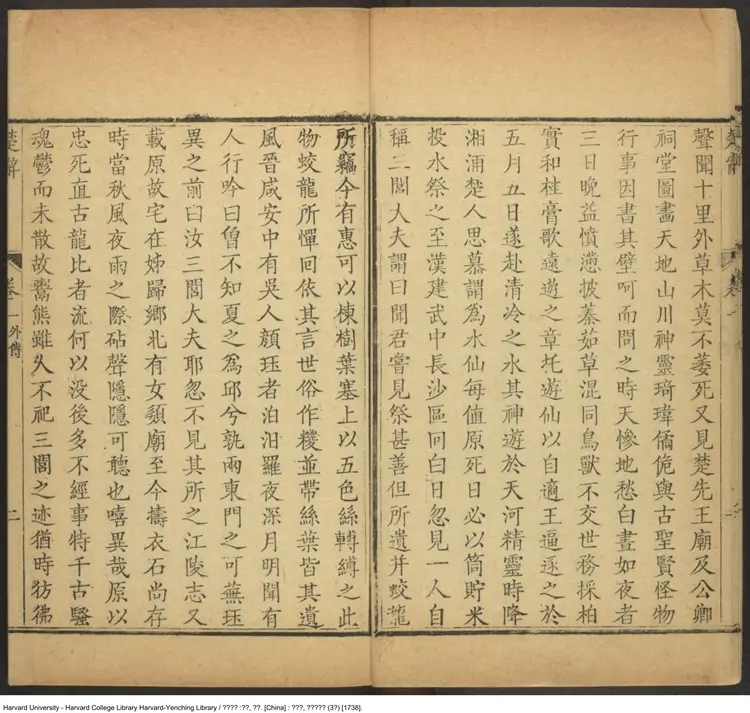 聲聞十里外草木莫不萎死又見楚先王廟及公卿
祠堂圖畫天地山川神靈琦瑋僪佹與古聖賢怪物
行事因書其壁呵而問之時天慘地愁白晝如夜者
三日晚益憤懣披蓁茹草混同鳥獸不交世務採柏
實和桂膏歌遠遊之章托遊仙以自適王逼逐之於
五月五日遂赴清冷之水其神遊於天河精靈時降
湘浦楚人思慕謂為水仙每值原死日必以筒貯米
投水祭之至漢建武中長沙區回白日忽見一人自
稱三閭大夫謂曰聞君嘗見祭甚善但所遺并蛟龍
所竊今有惠可以楝樹葉塞上以五色絲轉縛之此
物蛟龍所憚回依其言世俗作糉並帶絲葉皆其遺
風晉咸安中有吳人顏珏者泊汨羅夜深月明聞有
人行吟曰曾不知夏之為邱兮孰兩東門之可蕪珏
異之前曰汝三閭大夫耶忽不見其所之江陵志又
載原故宅在姊歸鄉北有女嬃廟至今擣衣石尚存
時當秋風夜雨之際砧聲隱隱可聽也嘻異哉原以
忠死直古龍比者流何以没後多不經事特千古騷
魂鬱而未散故鬻熊雖乆不祀三閭之迹猶時彷彿
楚辭
卷一外傳
二
Harvard University - Harvard College Library Harvard-Yenching Library / ???? :??, ??. [China] : ???, ????? (3?) [1738].